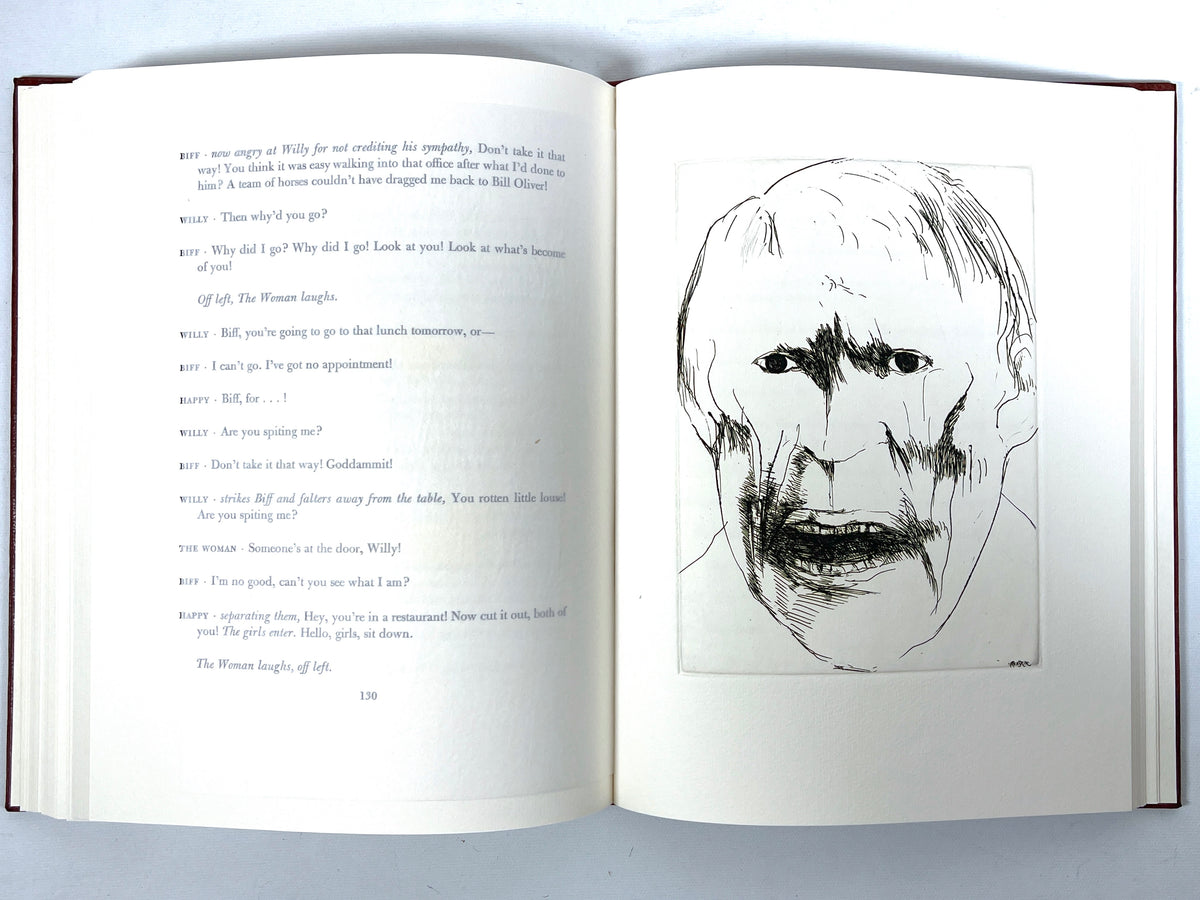 BIFF · now angry at Willy for not crediting his sympathy, Don't take it that
way! You think it was easy walking into that office after what I'd done to
him? A team of horses couldn't have dragged me back to Bill Oliver!
WILLY · Then why'd you go?
BIFF · Why did I go? Why did I go! Look at you! Look at what's become
of you!
Off left, The Woman laughs.
WILLY · Biff, you're going to go to that lunch tomorrow, or—
BIFF · I can't go. I've got no appointment!
HAPPY · Biff, for . . . !
WILLY · Are you spiting me?
BIFF · Don't take it that way! Goddammit!
WILLY · strikes Biff and falters away from the table, You rotten little louse!
Are you spiting me?
THE WOMAN · Someone's at the door, Willy!
BIFF · I'm no good, can't you see what I am?
HAPPY · separating them, Hey, you're in a restaurant! Now cut it out, both of
you! The girls enter. Hello, girls, sit down.
The Woman laughs, off left.
130